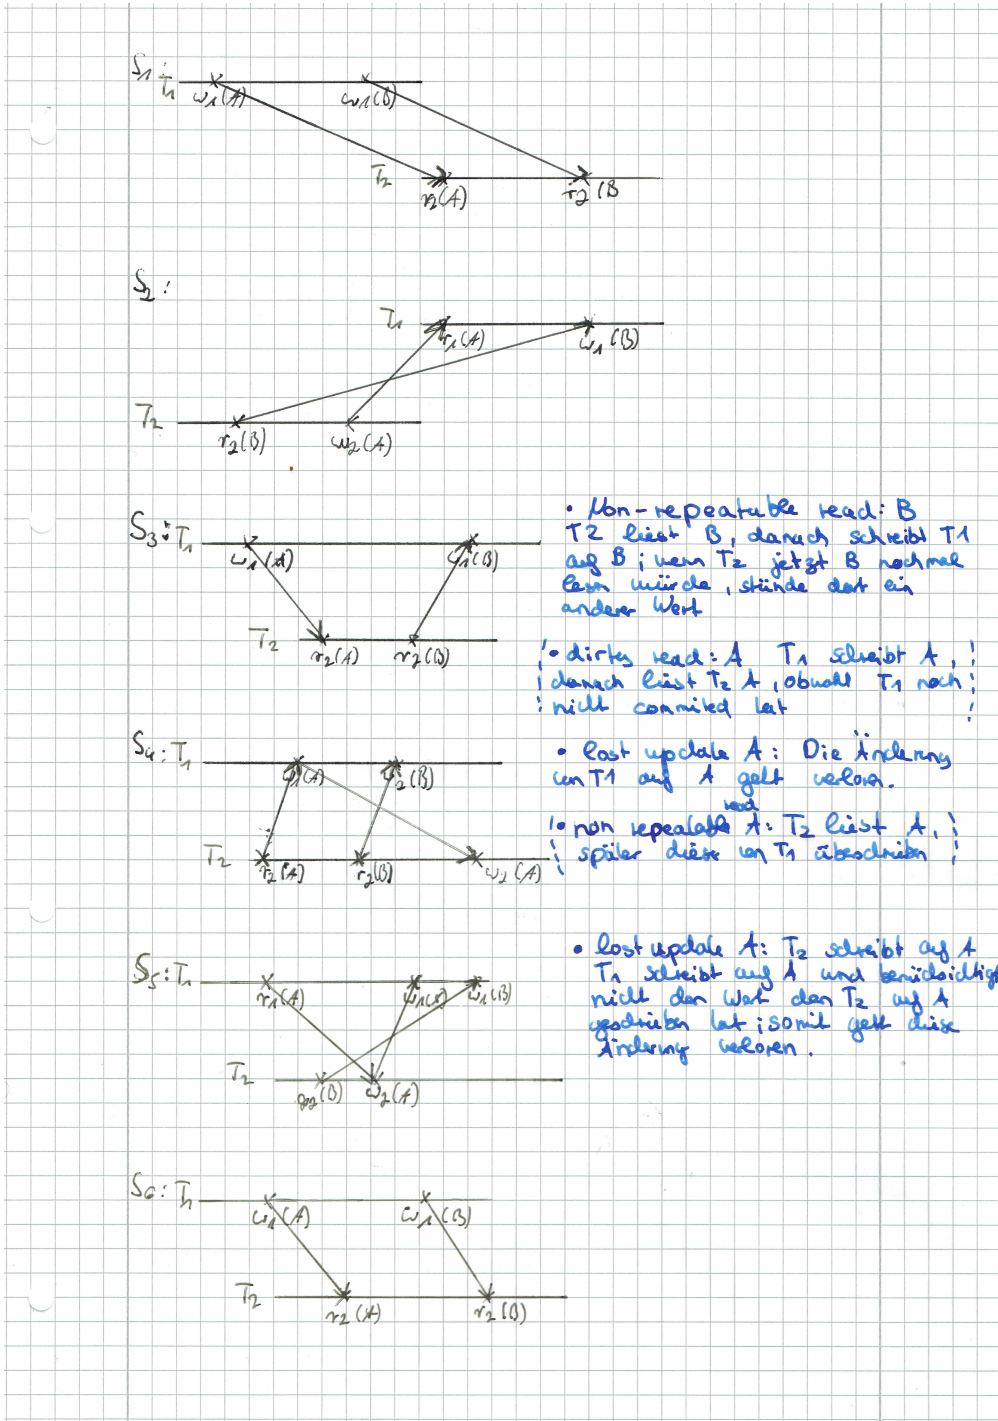 S1: T1
w1(A) w1(B)
T2
r2(A) r2(B
S2:
T1
r1(A) w1(B)
T2
r2(B) w2(A)
S3: T1
w1(A) w1(B)
T2
r2(A) r2(B)
• Non-repeatable read: B
T2 liest B, danach schreibt T1
auf B; wenn T2 jetzt B nochmal
lesen würde, stünde dort ein
anderer Wert
• dirty read: A T1 schreibt A,
danach liest T2 A, obwohl T1 noch
nicht commited hat
S4: T1
w1(A) (B)
T2
r2(A) r2(B) w2(A)
• lost update A: Die Änderung
von T1 auf A geht verloren.
read
• non repeatable A: T2 liest A,
später diese von T1 überschrieben
S5: T1
r1(A) w1(A) w1(B)
T2
(B) w2(A)
• lost update A: T2 schreibt auf A
T1 schreibt auf A und berücksichtigt
nicht den Wert den T2 auf A
geschrieben hat; somit geht diese
Änderung verloren.
S6: T1
w1(A) w1(B)
T2
r2(A) r2(B)